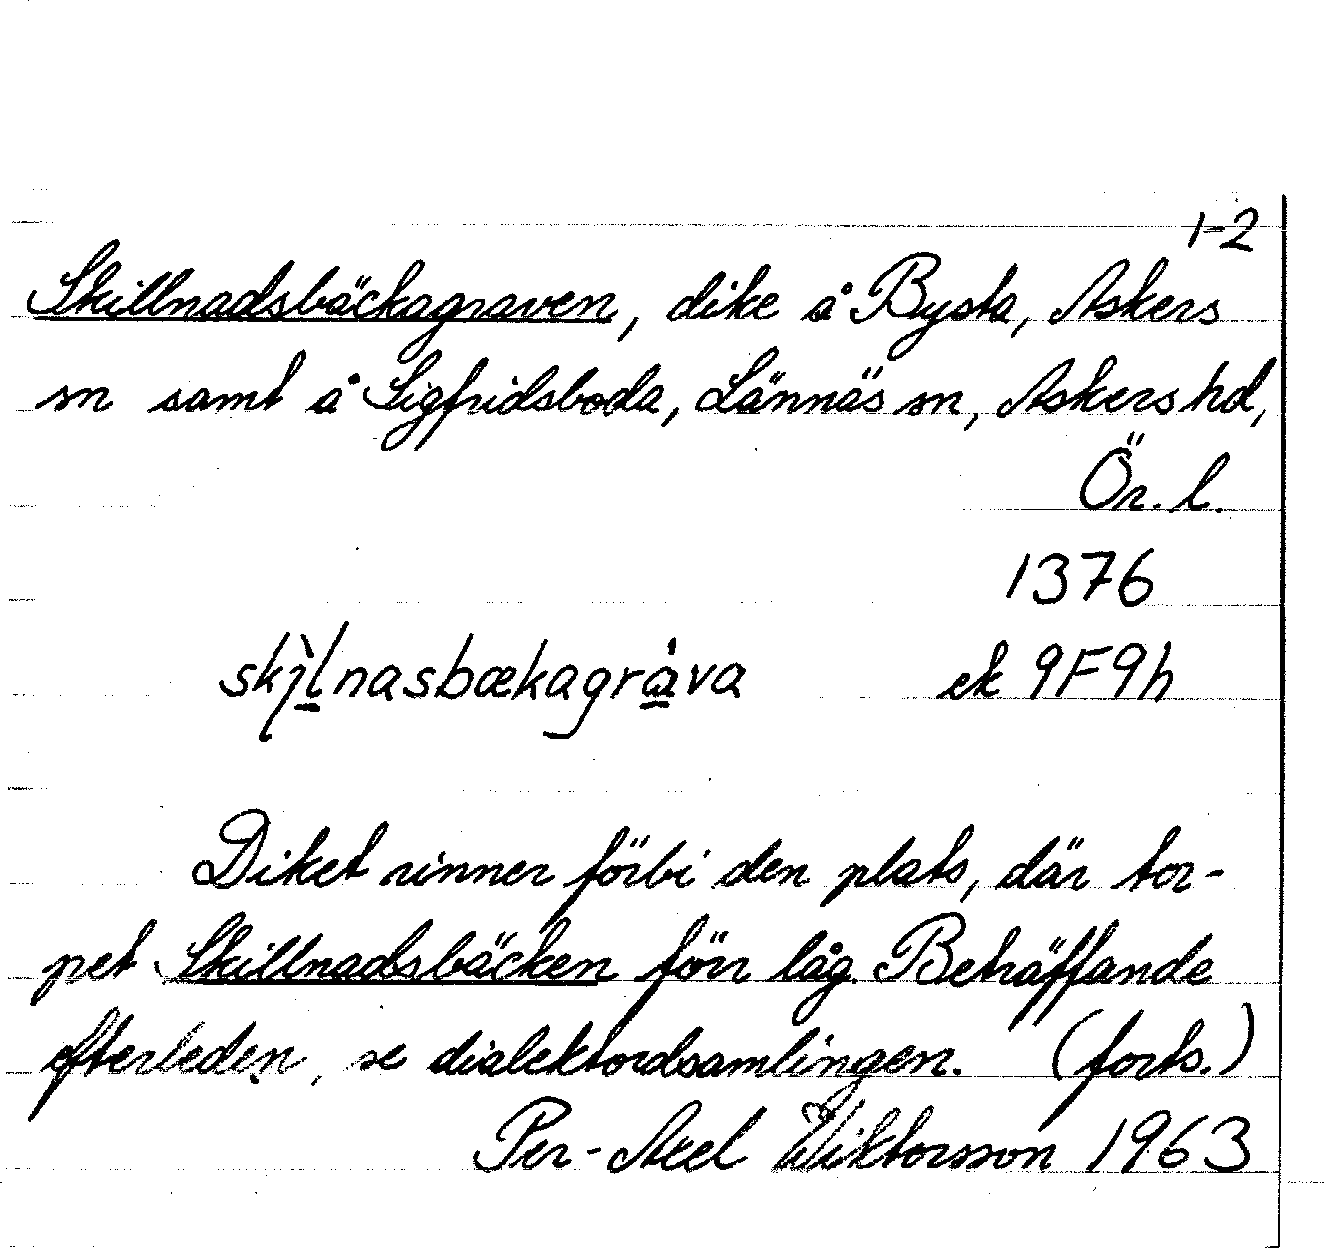 1-2
Skillnadsbäckagraven, dike å Bysta, Askers
sn samt å Sigfridsboda, Lännäs sn, Askers hd,
Ör. l.
1376
skjìlnasbækagràva ek 9F9h
Diket rinner förbi den plats, där tor-
pet Skillnadsbäcken förr låg. Beträffande
efterleden, se dialektordsamlingen. (forts.)
Per-Axel Wiktorsson 1963